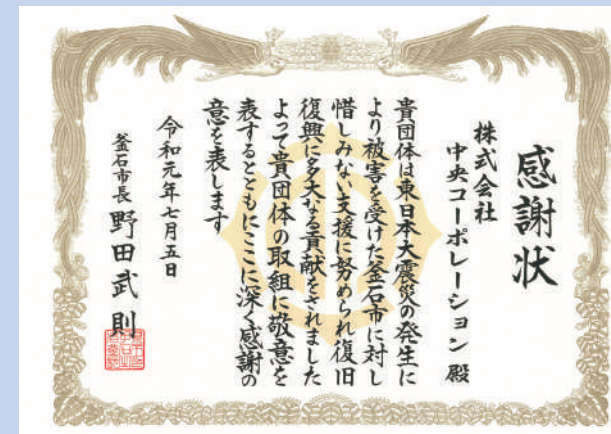 感謝状
株式会社
中央コーポレーション 殿
貴団体は東日本大震災の発生に
より被害を受けた釜石市に対し
惜しみない支援に努められ復旧
復興に多大なる貢献をされました
よって貴団体の取組に敬意を
表するとともにここに深く感謝の
意を表します
令和元年七月五日
釜石市長 野田武則